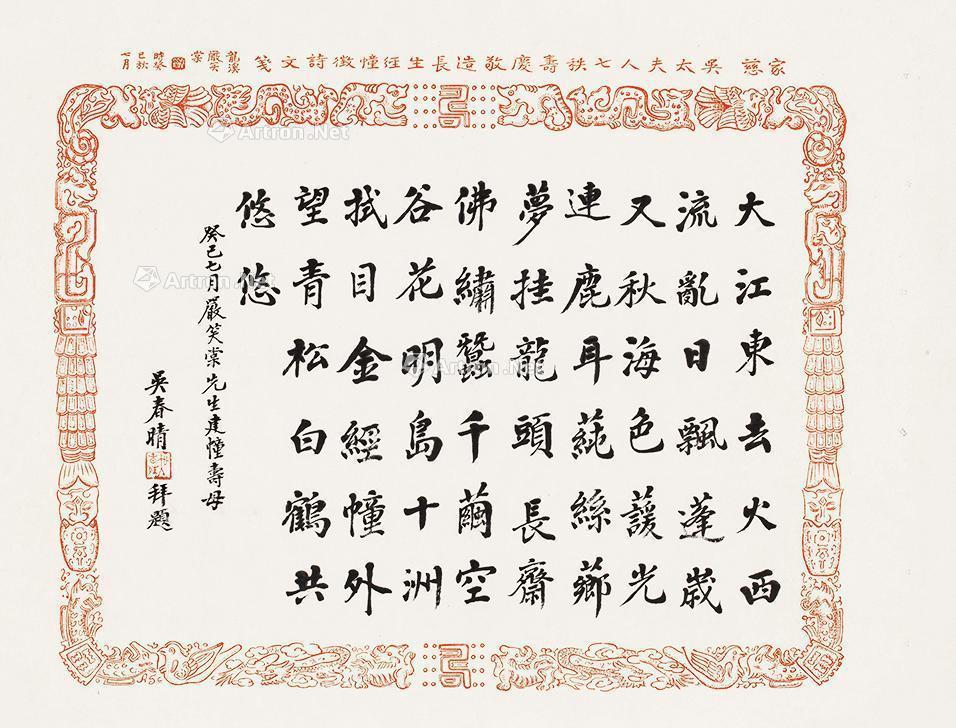 家慈 吳太夫人七秩壽慶敬造長生經幢徵詩文箋
龍溪
嚴笑
棠
時癸
巳秋
七月
大江東去火西
流亂日飄蓬歲
又秋海色蘐光
連鹿耳蒓絲薌
夢挂龍頭長齋
佛繡蠶千繭空
谷花明島十洲
拭目金經幢外
望青松白鶴共
悠悠
癸巳七月嚴笑棠先生建幢壽母
吳春晴拜題
Artron.Net
Artron.Net
Artron.Net